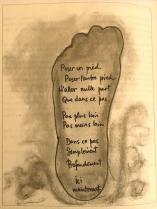 Poser un pied
Poser l'autre pied
N'aller nulle part
Que dans ce pas
Pas plus loin
Pas moins loin
Dans ce pas
Simplement
Profondément
Ici
maintenant